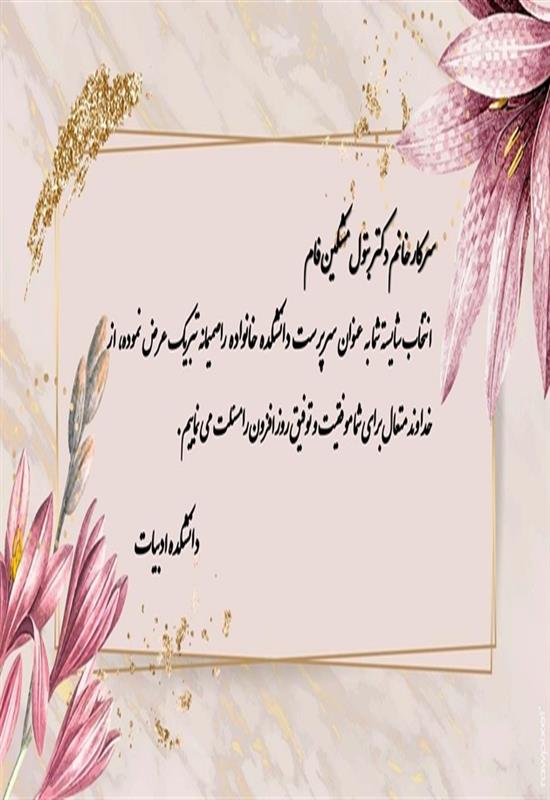 سرکار خانم دکتر بتول مشکین فام
انتخاب شایسته شما به عنوان سرپرست دانشکده خانواده را صمیمانه تبریک عرض نموده، از
خداوند متعال برای شما موفقیت و توفیق روز افزون را مسئلت می نماییم.
دانشکده ادبیات
rawpixel